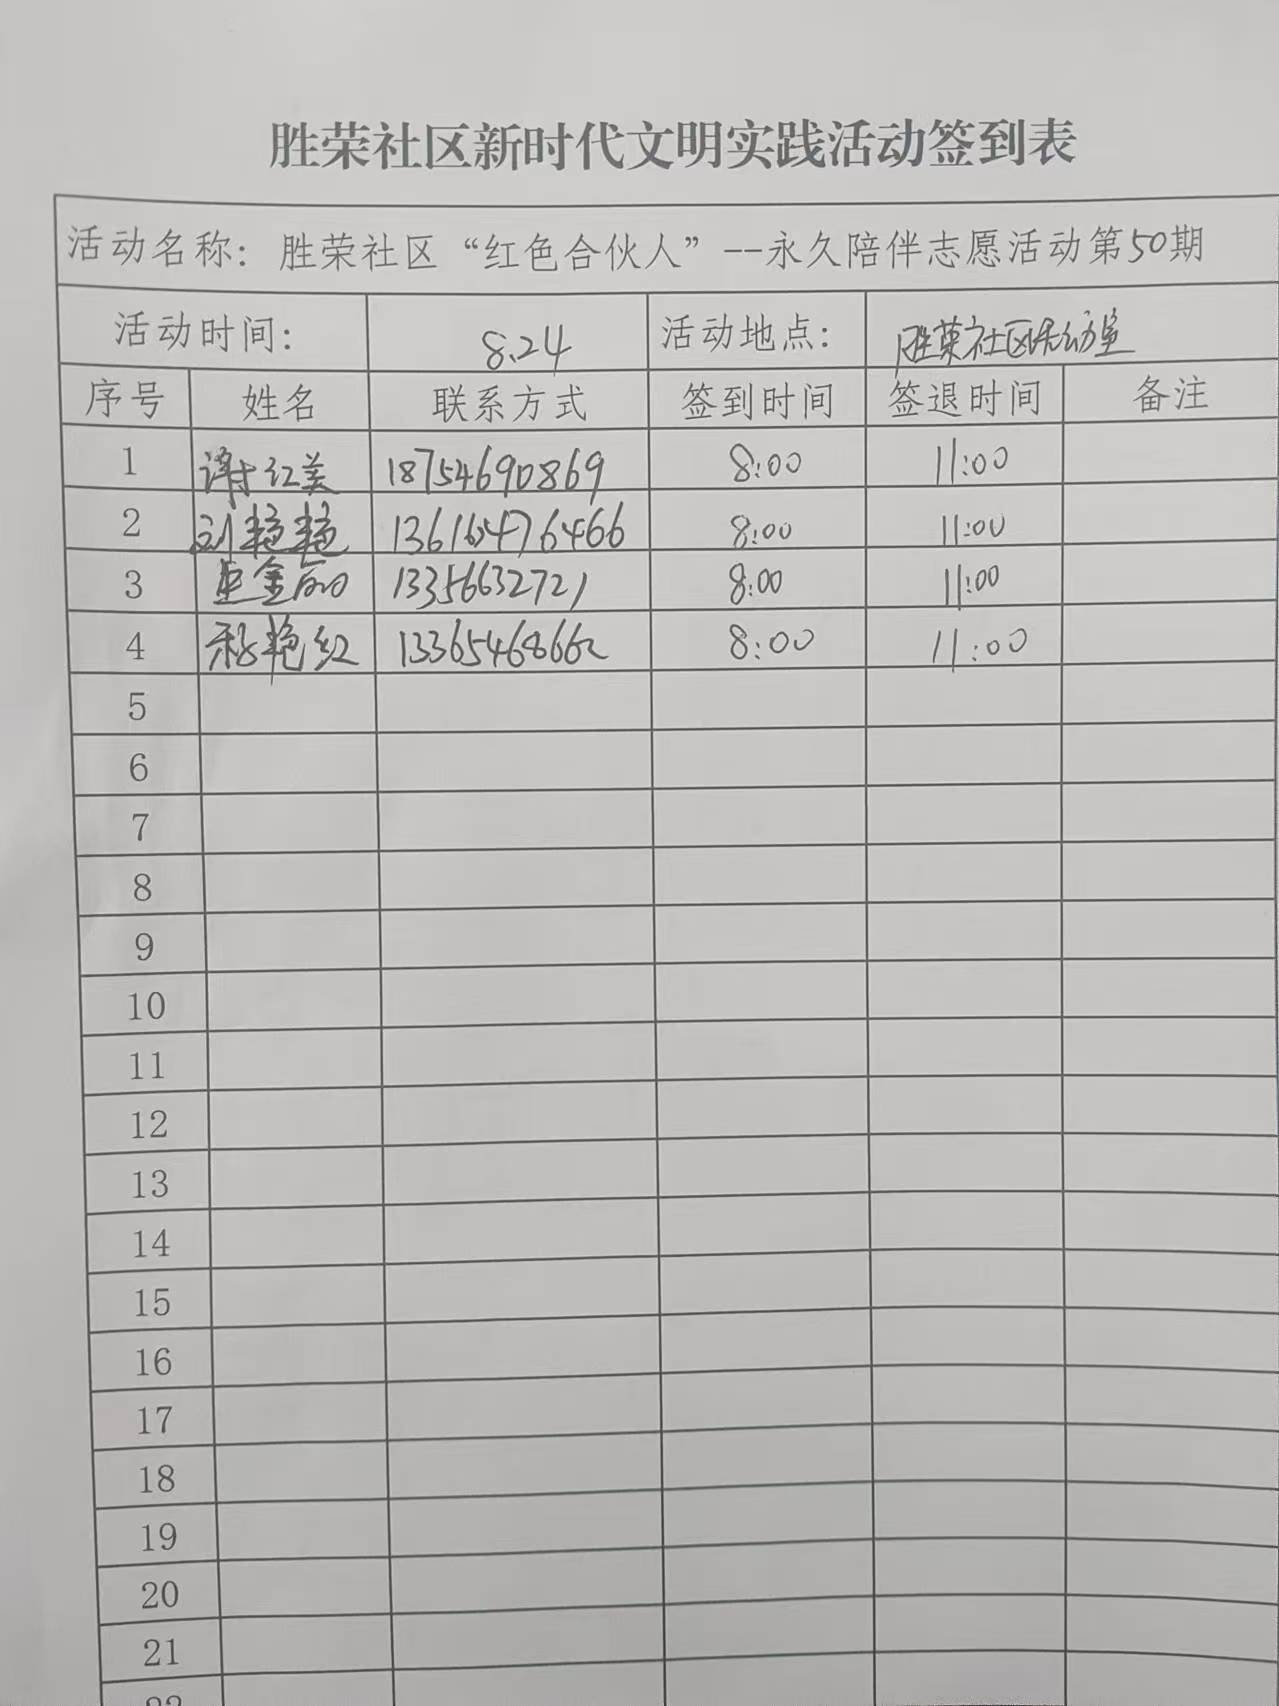 胜荣社区新时代文明实践活动签到表
活动名称：胜荣社区“红色合伙人”--永久陪伴志愿活动第50期
活动时间： 8.24 活动地点： 胜荣社区活动室
序号 姓名 联系方式 签到时间 签退时间 备注
1 谢红美 18754690869 8:00 11:00
2 刘艳艳 13616476466 8:00 11:00
3 13356632721 8:00 11:00
4 艳红 13365468662 8:00 11:00
5
6
7
8
9
10
11
12
13
14
15
16
17
18
19
20
21